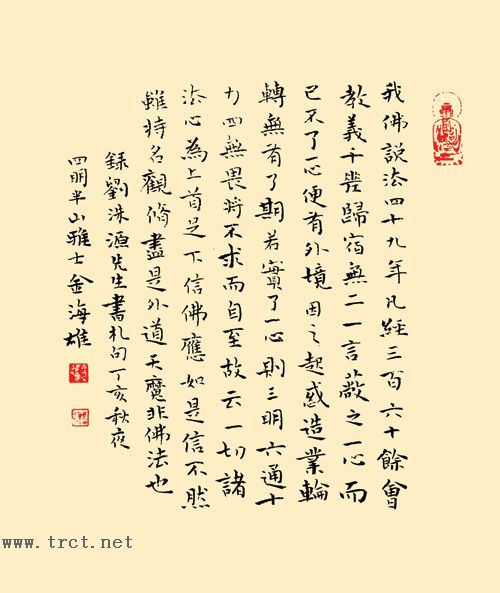 我佛說法四十九年凡經三百六十餘會
教義千差歸宿無二一言蔽之一心而
已不了一心便有外境因之起惑造業輪
轉無有了期若實了一心則三明六通十
力四無畏將不求而自至故云一切諸
法心為上首足下信佛應如是信不然
雖持名觀脩盡是外道天魔非佛法也
錄劉洙源先生書札句丁亥秋夜
四明半山雅士金海雄
www.trct.net